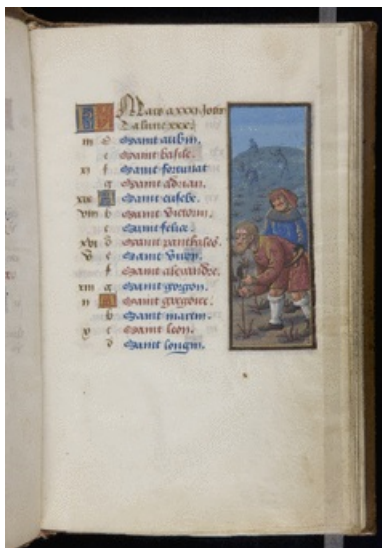 Mars a xxxi. Jours
La lune xxx.
iii d Saint aubin.
e Saint basile.
xi f Saint fortunat
g Saint adrian.
xix A Saint eusebe.
viii b Saint victorin.
c Saint felice.
xvi d Saint panthales.
v e Saint
f Saint alexandre.
xiii g Saint gorgon.
ii A Saint
b Saint martin.
x c Saint leon.
d Saint longin.